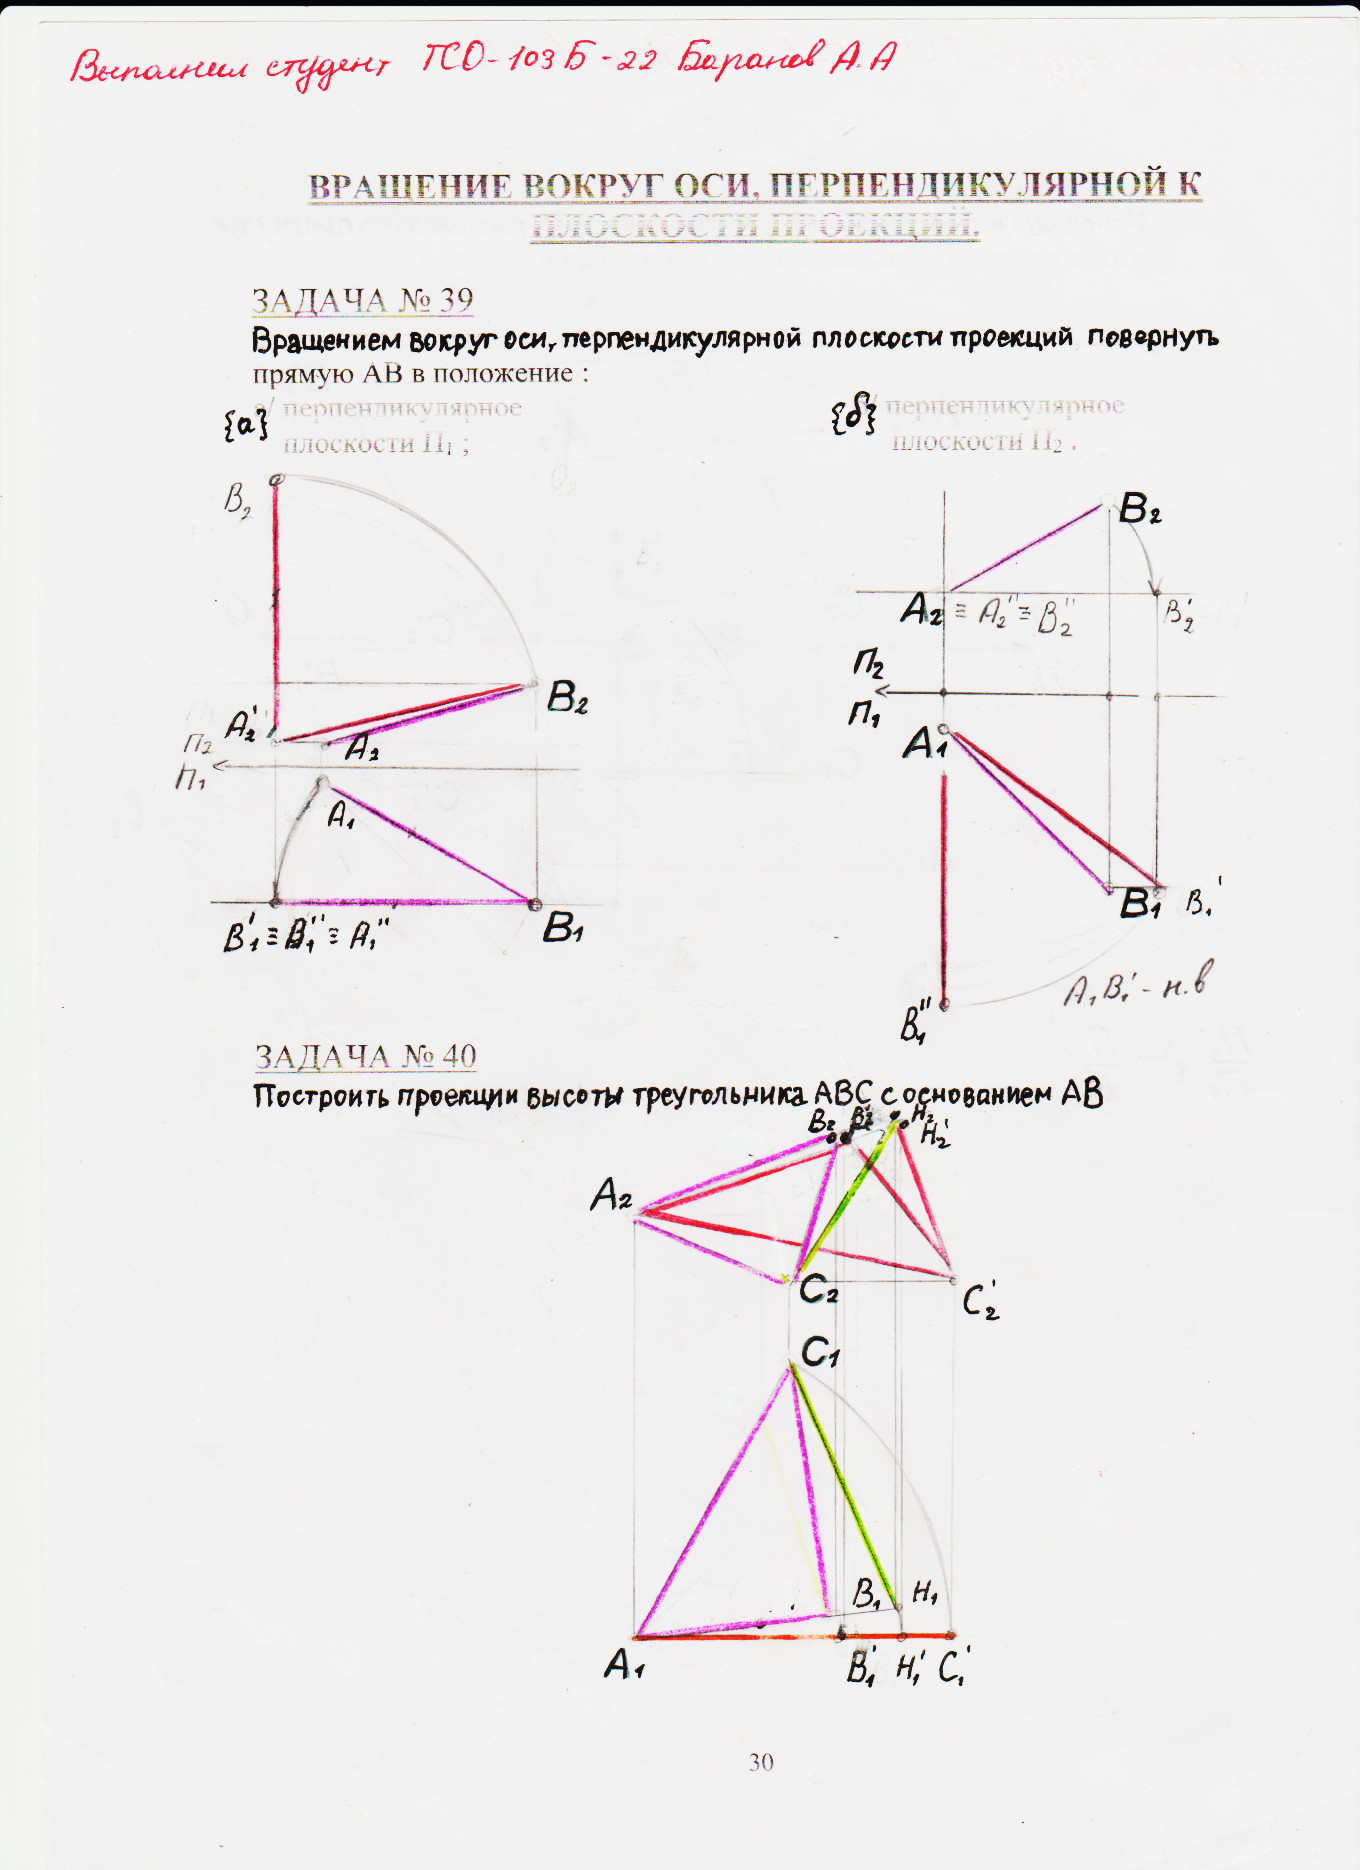 Выполнил студент ТСО-103Б-22 Баранов А.А
ВРАЩЕНИЕ ВОКРУГ ОСИ, ПЕРПЕНДИКУЛЯРНОЙ К
ПЛОСКОСТИ ПРОЕКЦИЙ.
ЗАДАЧА № 39
Вращением вокруг оси, перпендикулярной плоскости проекций повернуть
прямую АВ в положение :
{а} перпендикулярное
плоскости П₁ ;
{б} перпендикулярное
плоскости П₂ .
B₂
B₂
A₂'
A₂
П₂
П₁
A₁
B₁' ≡ B₁'' ≡ A₁''
B₁
B₂
A₂ ≡ A₂'' ≡ B₂''
B₂'
П₂
П₁
A₁
B₁
B₁'
A₁B₁' - н.в
B₁''
ЗАДАЧА № 40
Построить проекции высоты треугольника АВС с основанием АВ
B₂
B₂'
H₂
H₂'
A₂
C₂
C₂'
C₁
B₁
H₁
A₁
B₁'
H₁'
C₁'
30